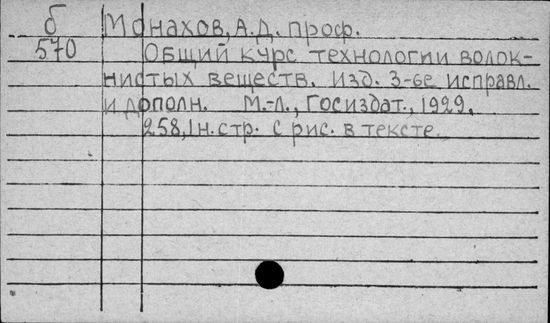 б Монахов, А.Д. проф.
570 Общий курс технологии волок-
нистых веществ. Изд. 3-ье исправл.
и дополн. М.-Л., Госиздат., 1929.
258, 1 н. стр. с рис. в тексте.